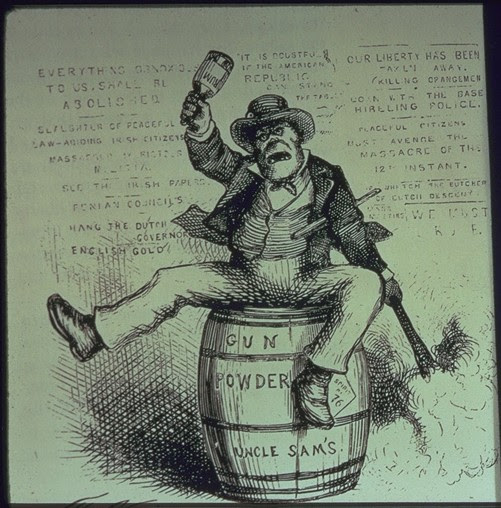 EVERYTHING OBNOXIOUS
TO US, SHALL BE
ABOLISHED
SLAUGHTER OF PEACEFUL
LAW-ABIDING IRISH CITIZENS
MASSACRED
SEE THE IRISH PAPERS
HANG THE DUTCH
GOVERNOR
ENGLISH GOLD!
IT IS DOUBTFUL IF
THE AMERICAN
REPUBLIC
OUR LIBERTY HAS BEEN
TAKEN AWAY.
KILLING ORANGEMEN
DOWN WITH THE BASE
HIRELING POLICE.
PEACEFUL CITIZENS
MUST AVENGE THE
MASSACRE OF THE
12TH INSTANT.
THE BUTCHER
OF DUTCH DESCENT
WE MUST
RULE.
GUN
POWDER
UNCLE SAM'S